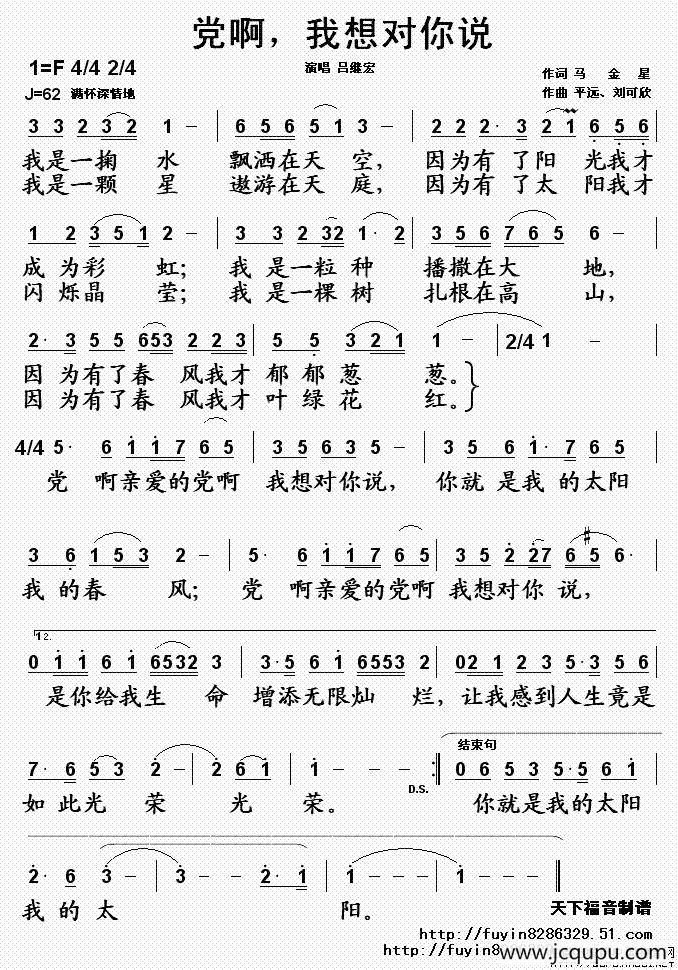 党啊，我想对你说
1=F 4/4 2/4
演唱 吕继宏
作词 马 金 星
J=62 满怀深情地
作曲 平远、刘可欣
3 3 2 3 2 1 – 6 5 6 5 1 3 – 2 2 2· 3 2 1 6 5 6
我是一掬 水 飘洒在天 空, 因为有 了阳 光我才
我是一颗 星 遨游在天 庭, 因为有 了太 阳我才
1 2 3 5 1 2 – 3 3 2 32 1· 2 3 5 6 7 6 5 6 –
成 为彩 虹; 我 是一粒 种 播撒在大 地,
闪 烁晶 莹; 我 是一棵 树 扎根在高 山,
2· 3 5 5 653 2 2 5 5 3 2 1 1 – 2/4 1 –
因 为有了春 风我才 郁 郁葱 葱。
因 为有了春 风我才 叶 绿花 红。
4/4 5· 6 1 1 7 6 5 3 5 6 3 5 – 3 5 6 1· 7 6 5
党 啊亲爱的党啊 我想对你说, 你就 是我 的太阳
3 6 1 5 3 2 – 5· 6 1·1 7 6 5 3 5 2· 27 6 #5 6·
我 的春 风; 党 啊亲爱的党啊 我想对你 说,
12.
0 1 1 6 1 6532 3 3·5 6 1 6553 2 02 1 2 3 5·3 5 6
是你给我生 命 增添无限灿 烂, 让我感到人生竟是
结束句
7· 6 5 3 2 – 2 6 1 1 – – D.S. 0 6 5 3 5·5 6 1
如 此光 荣 光 荣。 你就是我的太阳
2· 6 3 – 3 – 2· 2 1 3 1 – – – 1 – – –
我 的 太 阳。
天下福音制谱
http://fuyin8286329.51.com
http://fuyin8
www.jcqupu.com